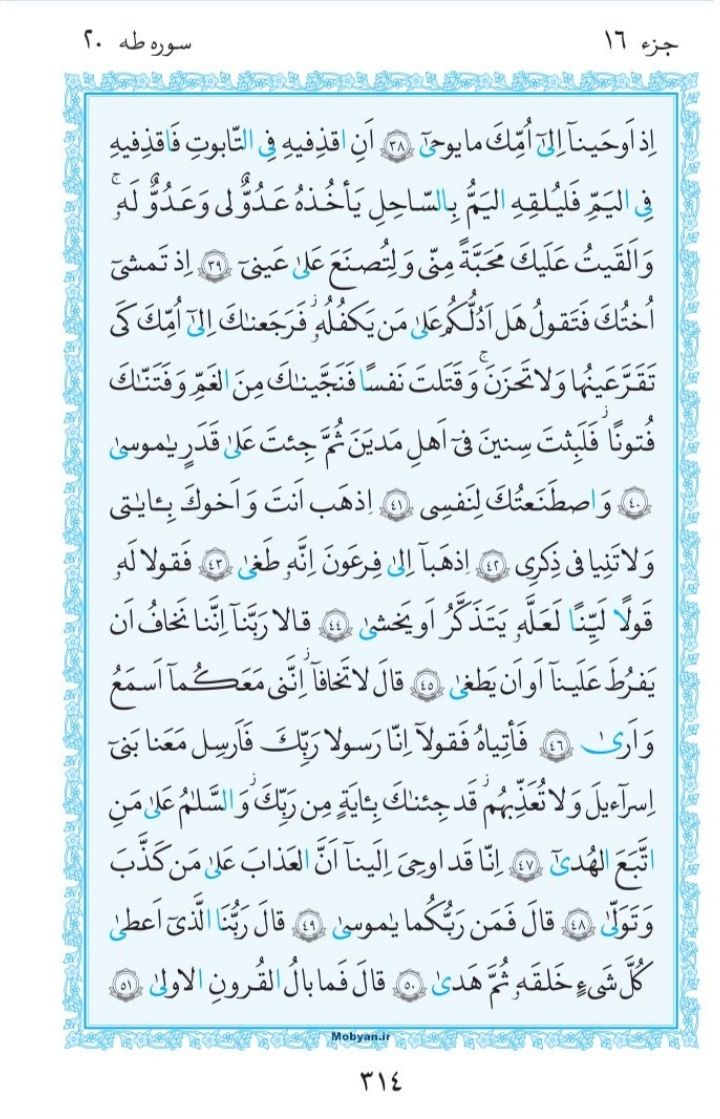 جزء ۱۶
سوره طه ۲۰
اِذ اَوحَينآ اِلىٰٓ اُمِّكَ ما يوحىٰٓ ﴿٣٨﴾ اَنِ اقذِفيهِ فِى التّابوتِ فَاقذِفيهِ
فِى اليَمِّ فَليُلقِهِ اليَمُّ بِالسّاحِلِ يَأخُذهُ عَدُوٌّ لى وَ عَدُوٌّ لَهٗ ۚ
وَ اَلقَيتُ عَلَيكَ مَحَبَّةً مِنّى وَ لِتُصنَعَ عَلىٰ عَينىٓ ﴿٣٩﴾ اِذ تَمشىٓ
اُختُكَ فَتَقولُ هَل اَدُلُّكُم عَلىٰ مَن يَكفُلُهٗ ۖ فَرَجَعنٰكَ اِلىٰٓ اُمِّكَ كَى
تَقَرَّ عَينُها وَلا تَحزَنَ ۚ وَ قَتَلتَ نَفسًا فَنَجَّينٰكَ مِنَ الغَمِّ وَ فَتَنّٰكَ
فُتونًا ۚ فَلَبِثتَ سِنينَ فىٓ اَهلِ مَديَنَ ثُمَّ جِئتَ عَلىٰ قَدَرٍ يٰموسىٰ
﴿٤٠﴾ وَ اصطَنَعتُكَ لِنَفسِى ﴿٤١﴾ اِذهَب اَنتَ وَ اَخوكَ بِـٔايٰتى
وَ لا تَنِيا فى ذِكرِى ﴿٤٢﴾ اِذهَبآ اِلىٰ فِرعَونَ اِنَّهٗ طَغىٰ ﴿٤٣﴾ فَقولا لَهٗ
قَولًا لَيِّنًا لَعَلَّهٗ يَتَذَكَّرُ اَو يَخشىٰ ﴿٤٤﴾ قالا رَبَّنآ اِنَّنا نَخافُ اَن
يَفرُطَ عَلَينآ اَو اَن يَطغىٰ ﴿٤٥﴾ قالَ لا تَخافآ ۖ اِنَّنى مَعَكُمآ اَسمَعُ
وَ اَرىٰ ﴿٤٦﴾ فَأتِياهُ فَقولآ اِنّا رَسولا رَبِّكَ فَاَرسِل مَعَنا بَنىٓ
اِسرآءيلَ وَ لا تُعَذِّبهُم ۖ قَد جِئنٰكَ بِـٔايَةٍ مِن رَبِّكَ ۖ وَ السَّلٰمُ عَلىٰ مَنِ
اتَّبَعَ الهُدىٰٓ ﴿٤٧﴾ اِنّا قَد اوحِىَ اِلَينآ اَنَّ العَذابَ عَلىٰ مَن كَذَّبَ
وَ تَوَلّىٰ ﴿٤٨﴾ قالَ فَمَن رَبُّكُما يٰموسىٰ ﴿٤٩﴾ قالَ رَبُّنَا الَّذىٓ اَعطىٰ
كُلَّ شَىءٍ خَلقَهٗ ثُمَّ هَدىٰ ﴿٥٠﴾ قالَ فَما بالُ القُرونِ الاولىٰ ﴿٥١﴾
Mobyan.ir
٣١٤